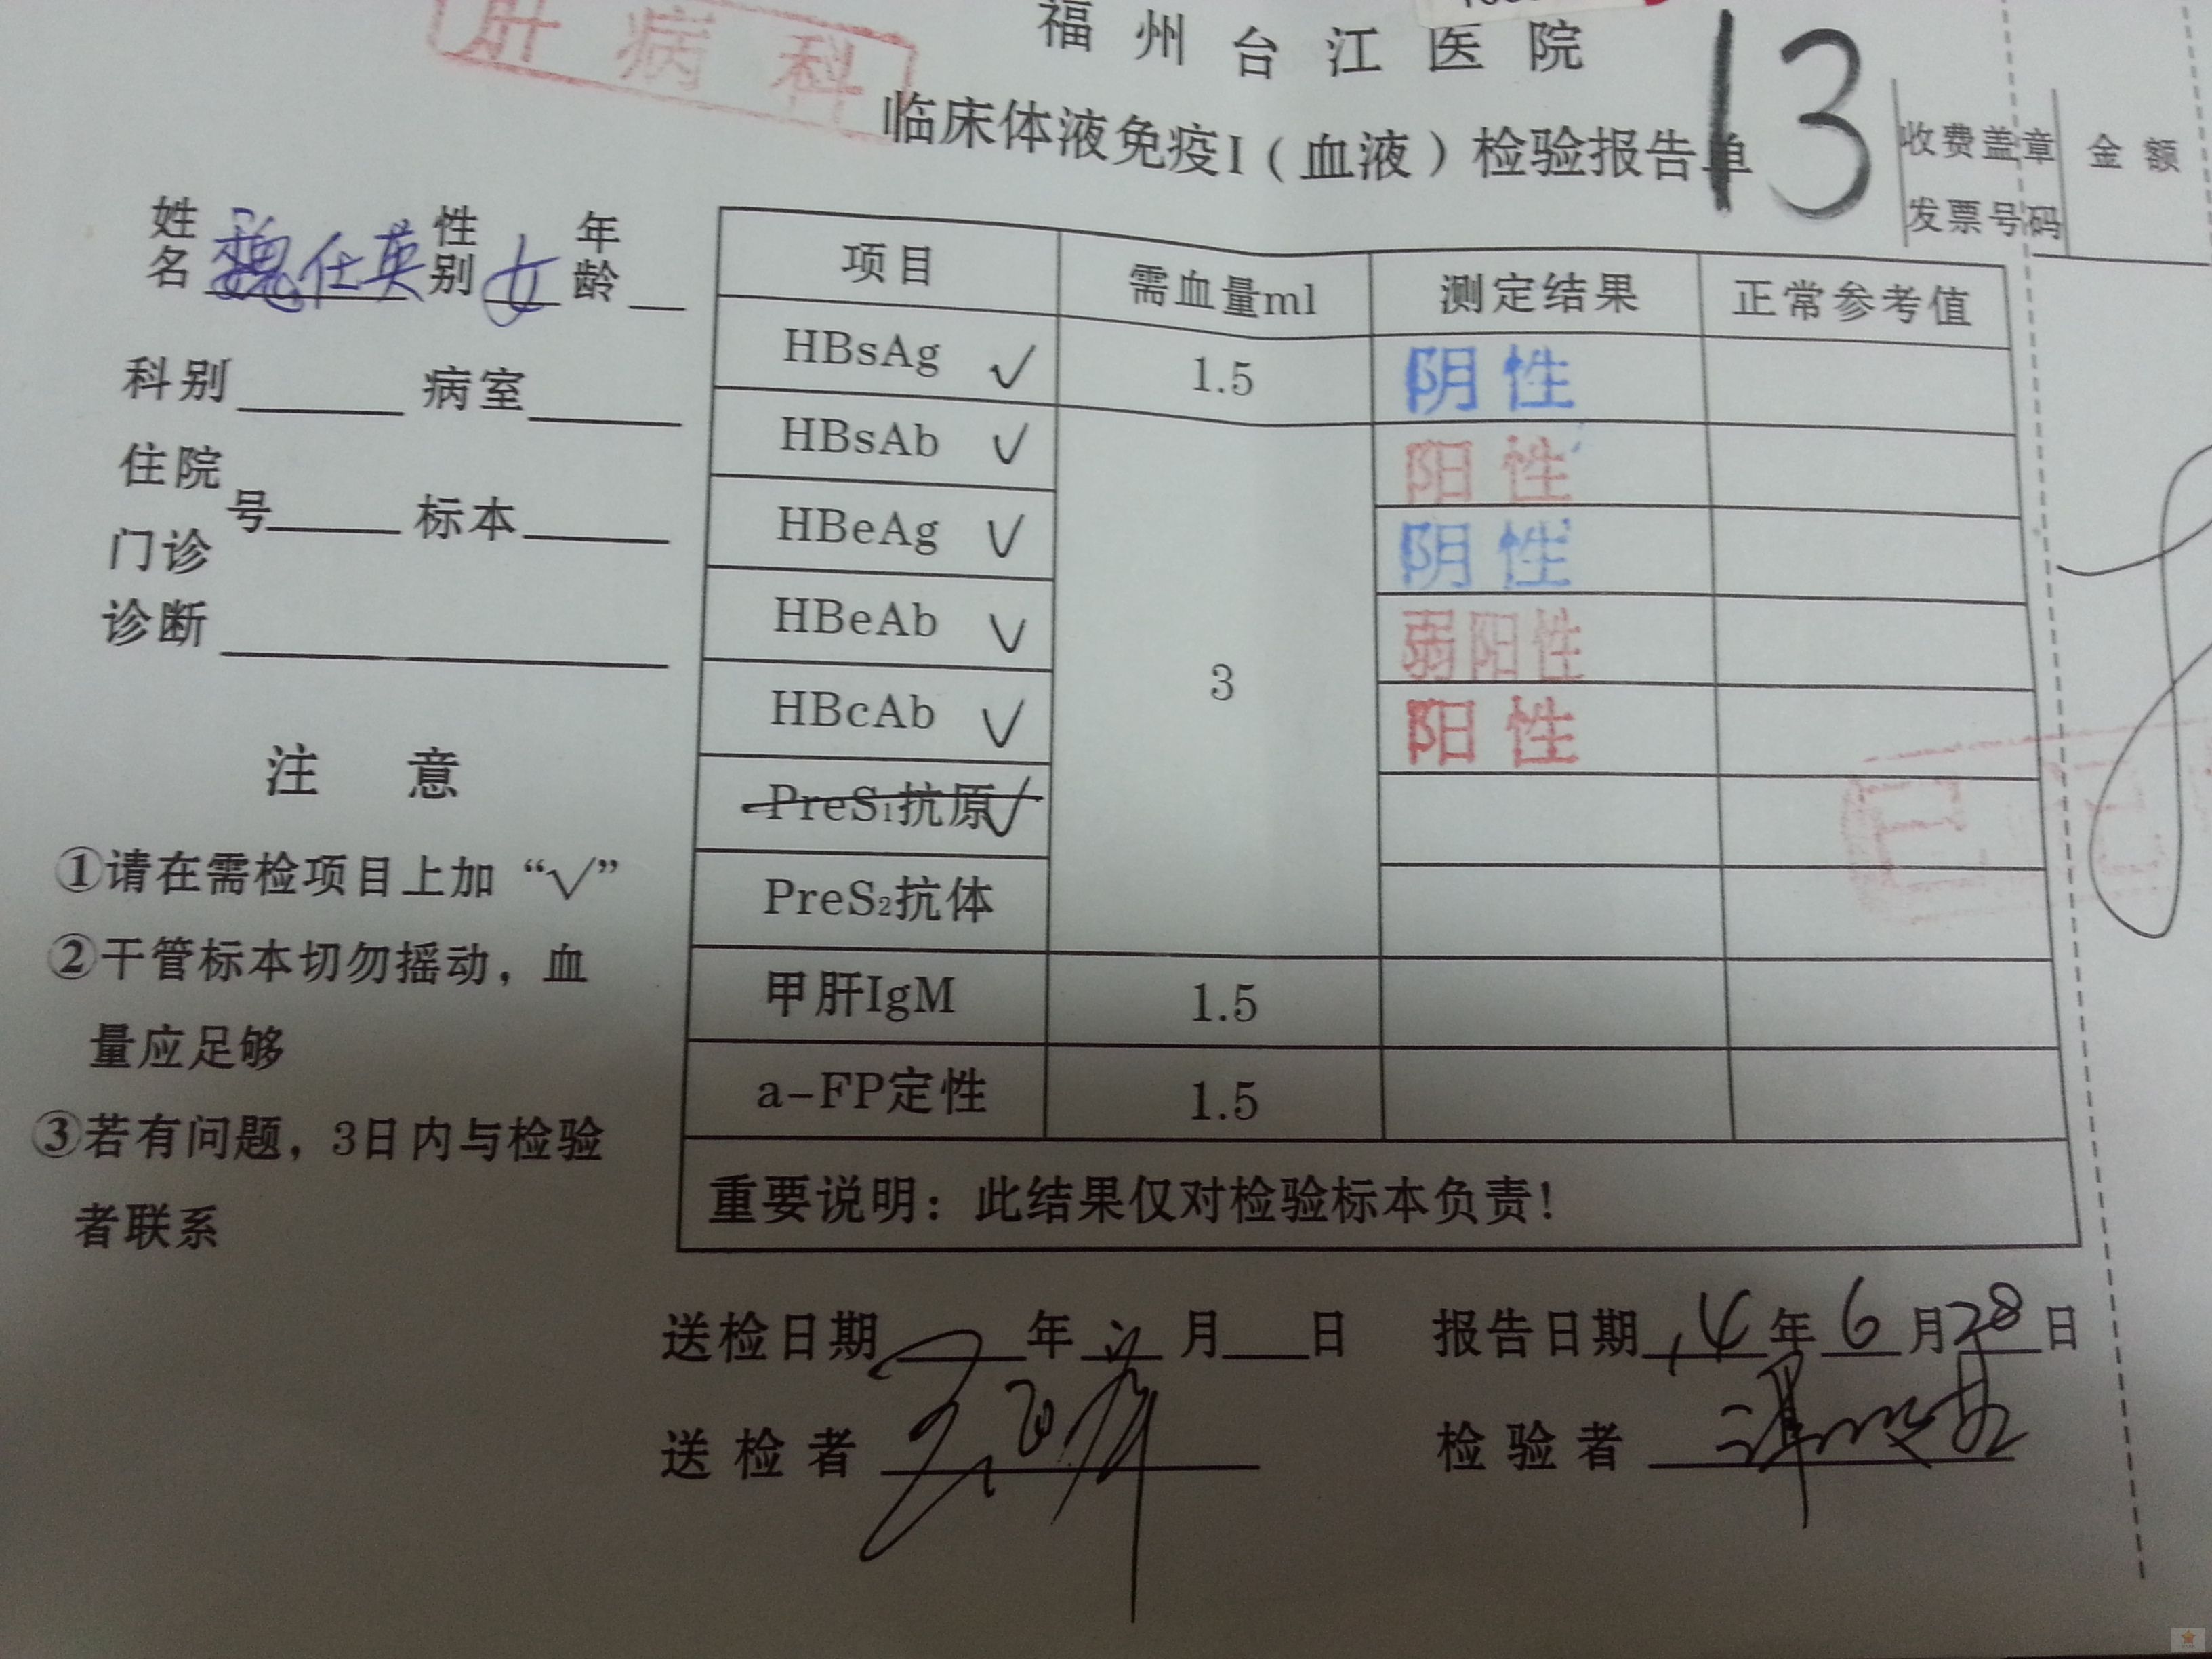 肝病科
福州台江医院
13
临床体液免疫I（血液）检验报告单
收费盖章 金额
发票号码
姓名 魏仕英 性别 女 年龄
科别 病室
住院
号 标本
门诊
诊断
项目 需血量ml 测定结果 正常参考值
HBsAg √ 1.5 阴性
HBsAb √ 阳性
HBeAg √ 阴性
HBeAb √ 弱阳性
3
HBcAb √ 阳性
PreS₁抗原 √
PreS₂抗体
甲肝IgM 1.5
a-FP定性 1.5
重要说明：此结果仅对检验标本负责！
注意
①请在需检项目上加“√”
②干管标本切勿摇动，血
量应足够
③若有问题，3日内与检验
者联系
送检日期 年 月 日 报告日期 14年6月28日
送检者 检验者